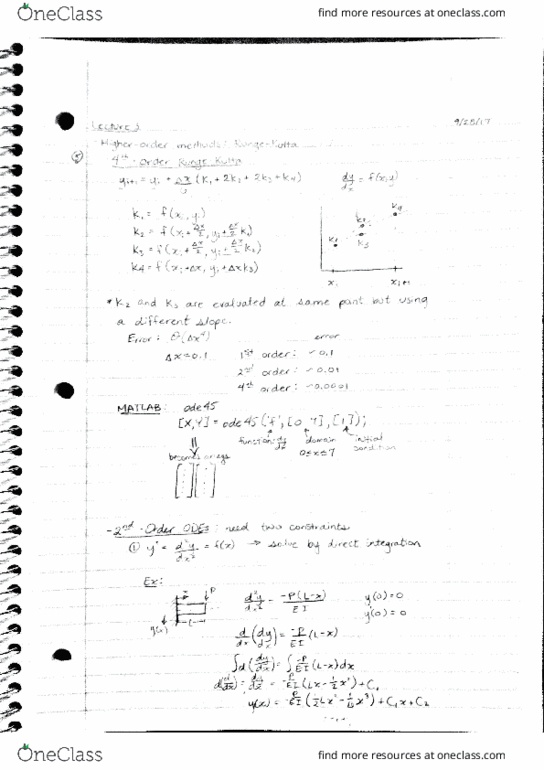 OneClass
find more resources at oneclass.com
Lecture 3
9/25/17
Higher-order methods: Runge-Kutta
4th-Order Runge Kutta
yi+1 = yi + Δx/6 (k1 + 2k2 + 2k3 + k4)
dy/dx = f(x,y)
k1 = f(xi, yi)
k2 = f(xi + Δx/2, yi + Δx/2 k1)
k3 = f(xi + Δx/2, yi + Δx/2 k2)
k4 = f(xi + Δx, yi + Δx k3)
k1 k2 k3 k4
xi xi+1
* K2 and K3 are evaluated at same point but using
a different slope.
Error: O(Δx⁴)
error
Δx=0.1
1st order: ~0.1
2nd order: ~0.01
4th order: ~0.0001
MATLAB: ode45
[X,Y] = ode45('f', [0 7], [1]);
function dy/dx
domain 0≤x≤7
initial condition
becomes arrays
- 2nd-Order ODEs: need two constraints
① y" = d²y/dx² = f(x) → solve by direct integration
Ex:
P
y(x)
L
d²y/dx² = -P(L-x)/EI
y(0)=0
y'(0)=0
d/dx (dy/dx) = -P/EI (L-x)
∫d(dy/dx) = ∫ -P/EI (L-x)dx
dy/dx = -P/EI (Lx - ½x²) + C1
y(x) = -P/EI (½Lx² - 1/6 x³) + C1x + C2
OneClass
find more resources at oneclass.com